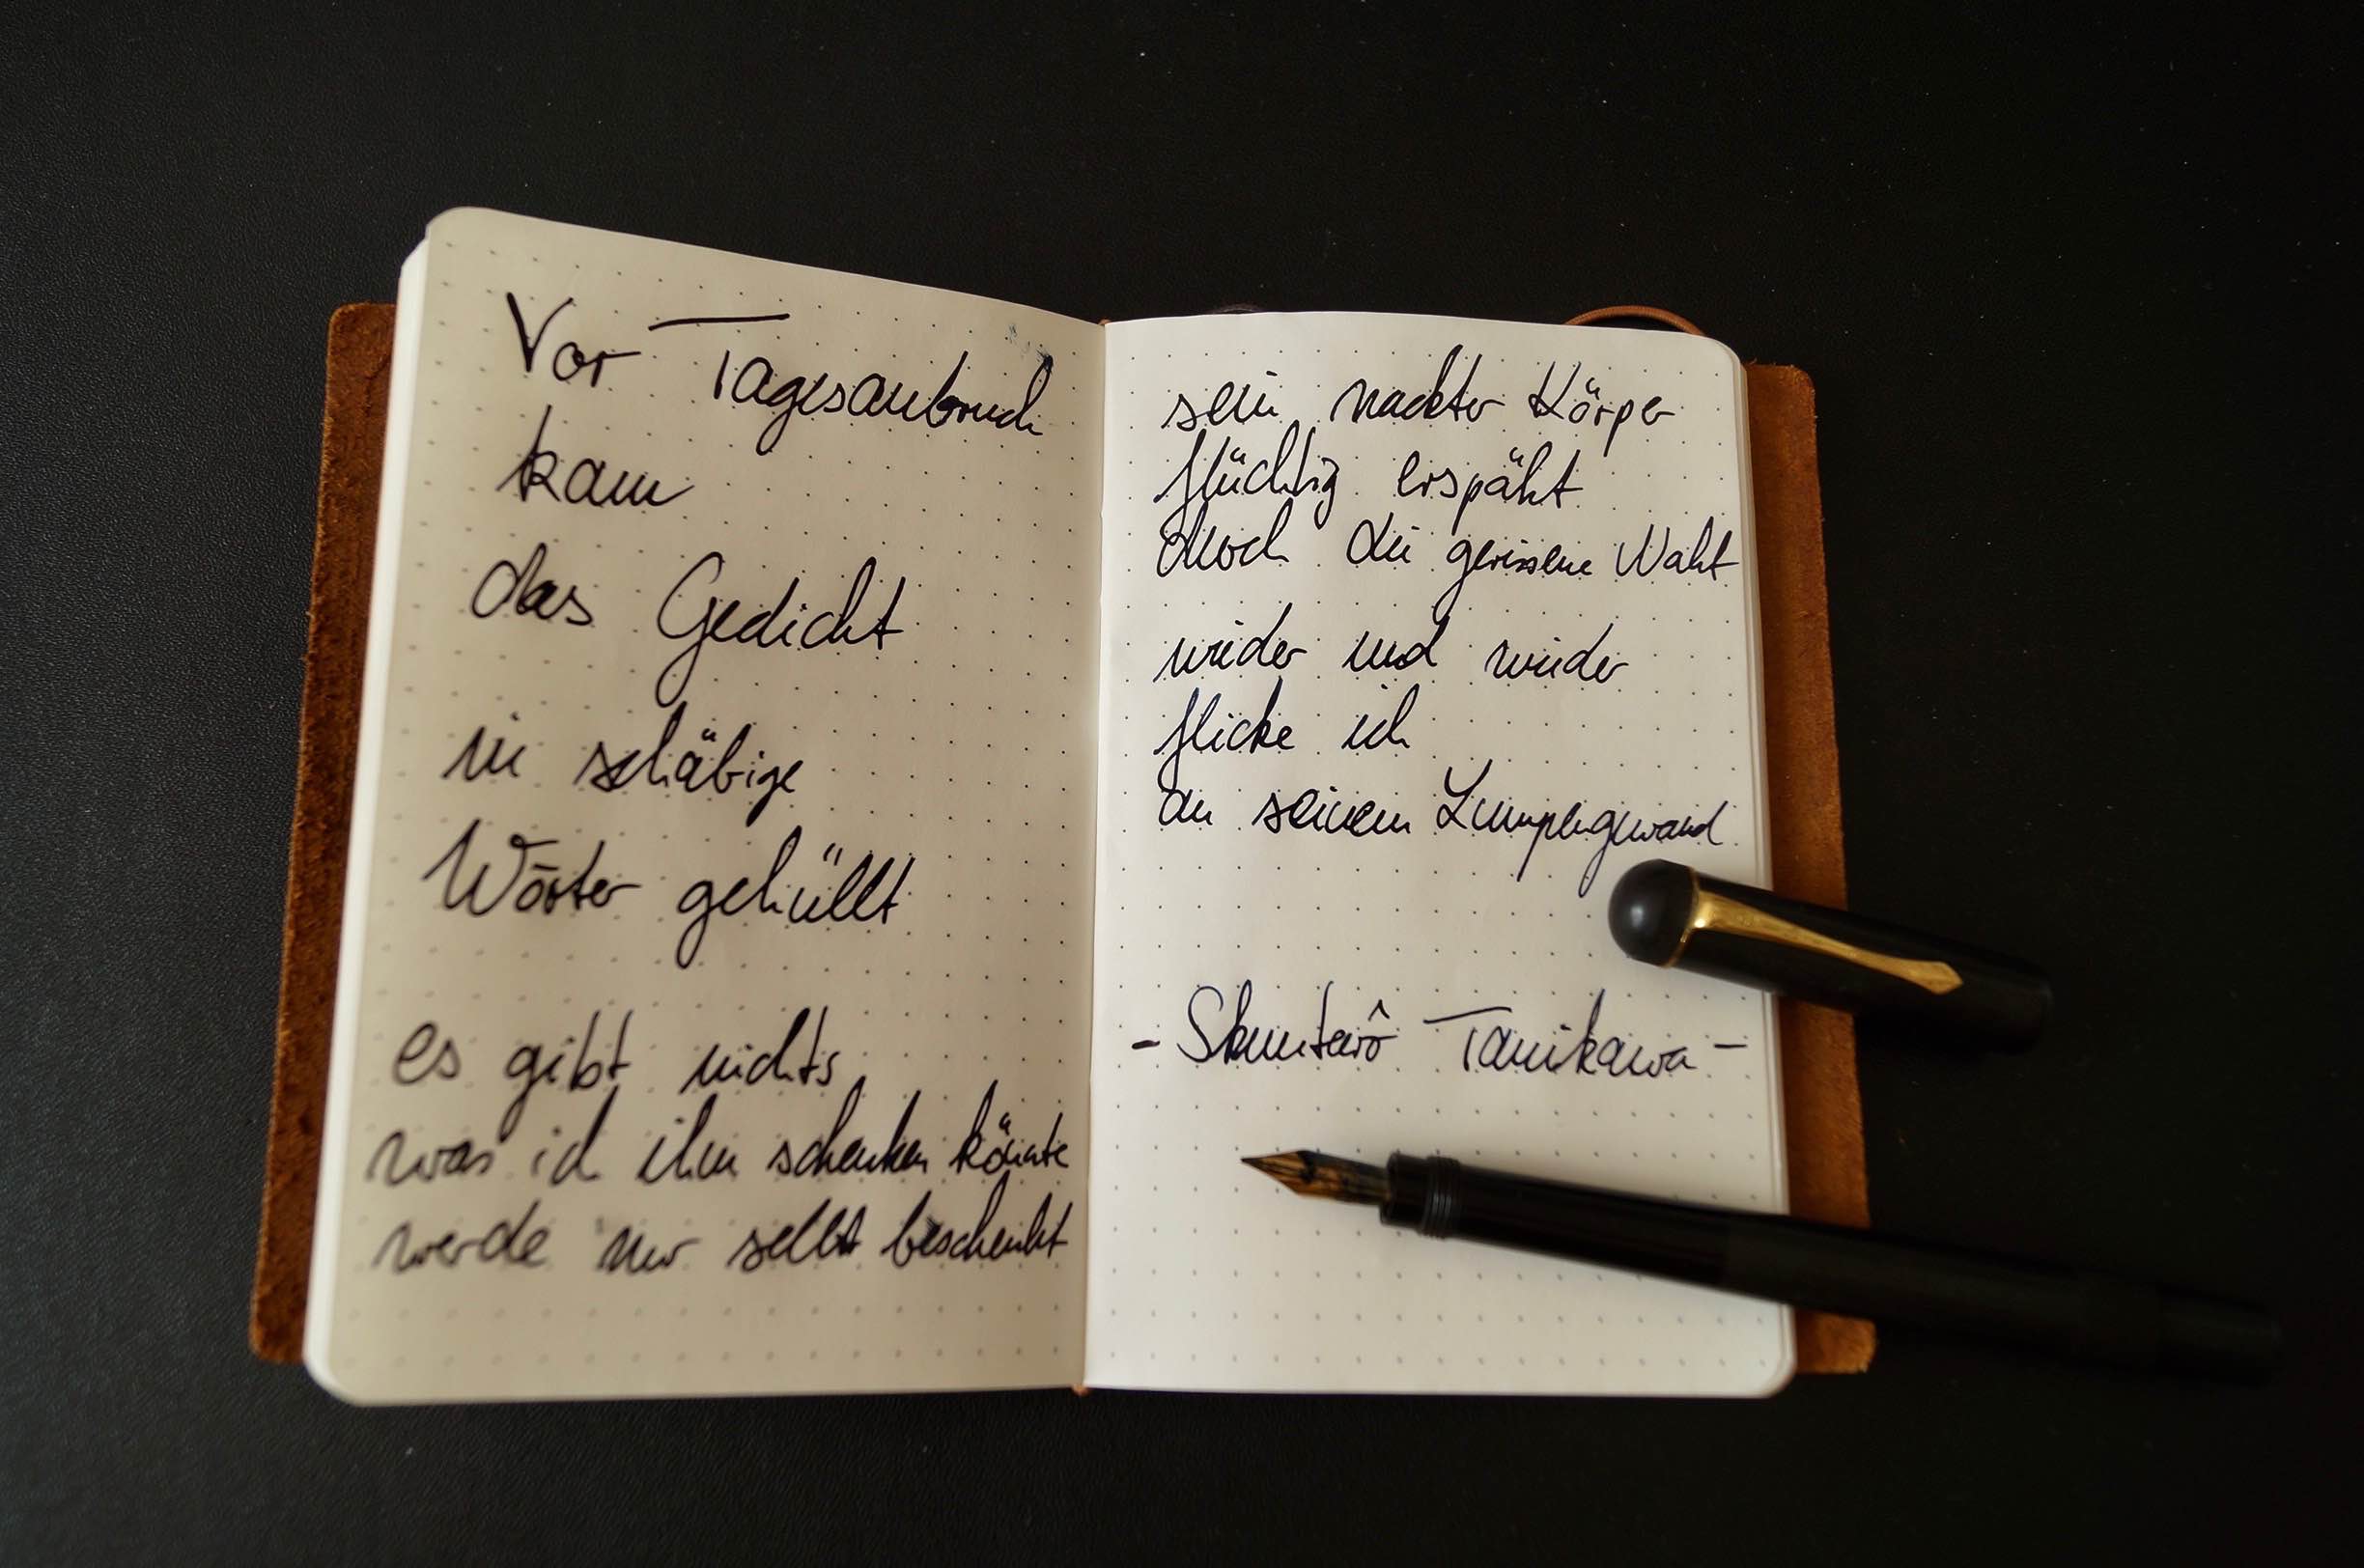 Vor Tagesanbruch
kam
das Gedicht
in schäbige
Wörter gehüllt
es gibt nichts
was ich ihm schenken könnte
werde nur selbst beschenkt
sein nackter Körper
flüchtig erspäht
durch die gerissene Naht
wieder und wieder
flicke ich
an seinem Lumpengewand
- Shuntarô Tanikawa -